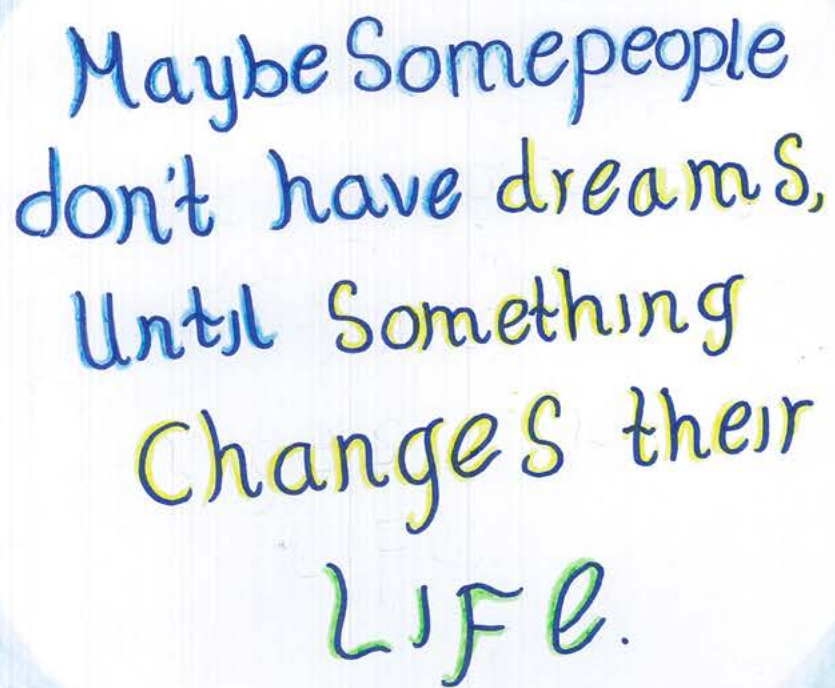 Maybe Somepeople
don't have dreams,
Until Something
Changes their
LIFe.